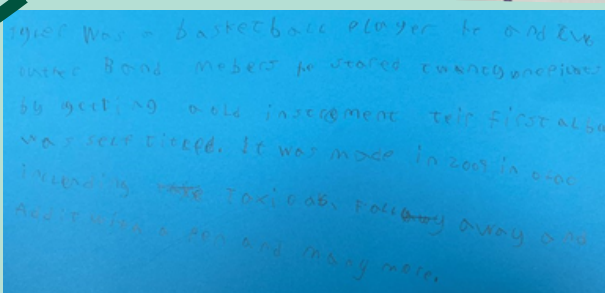 tyler was a basketball player he and two
uther Band mebers he stared twentyonepilots
by getting a old instrement teir first albu
was self titled. It was made in 2009 in
including Taxi cab, Falling away and
Addict with a pen and many more.